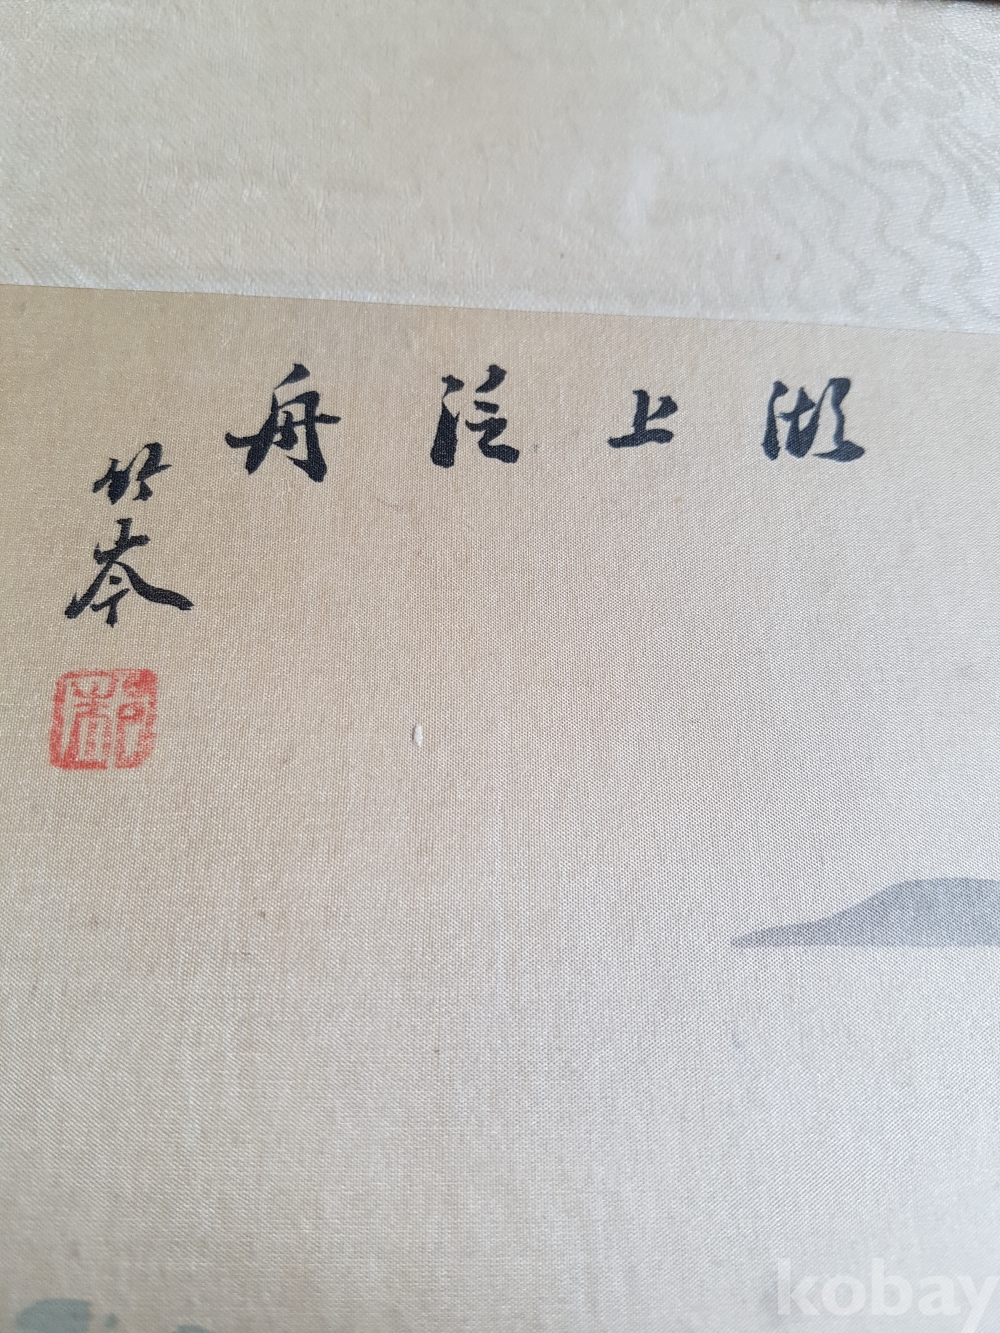 湖上泛舟
竹岑
kobay